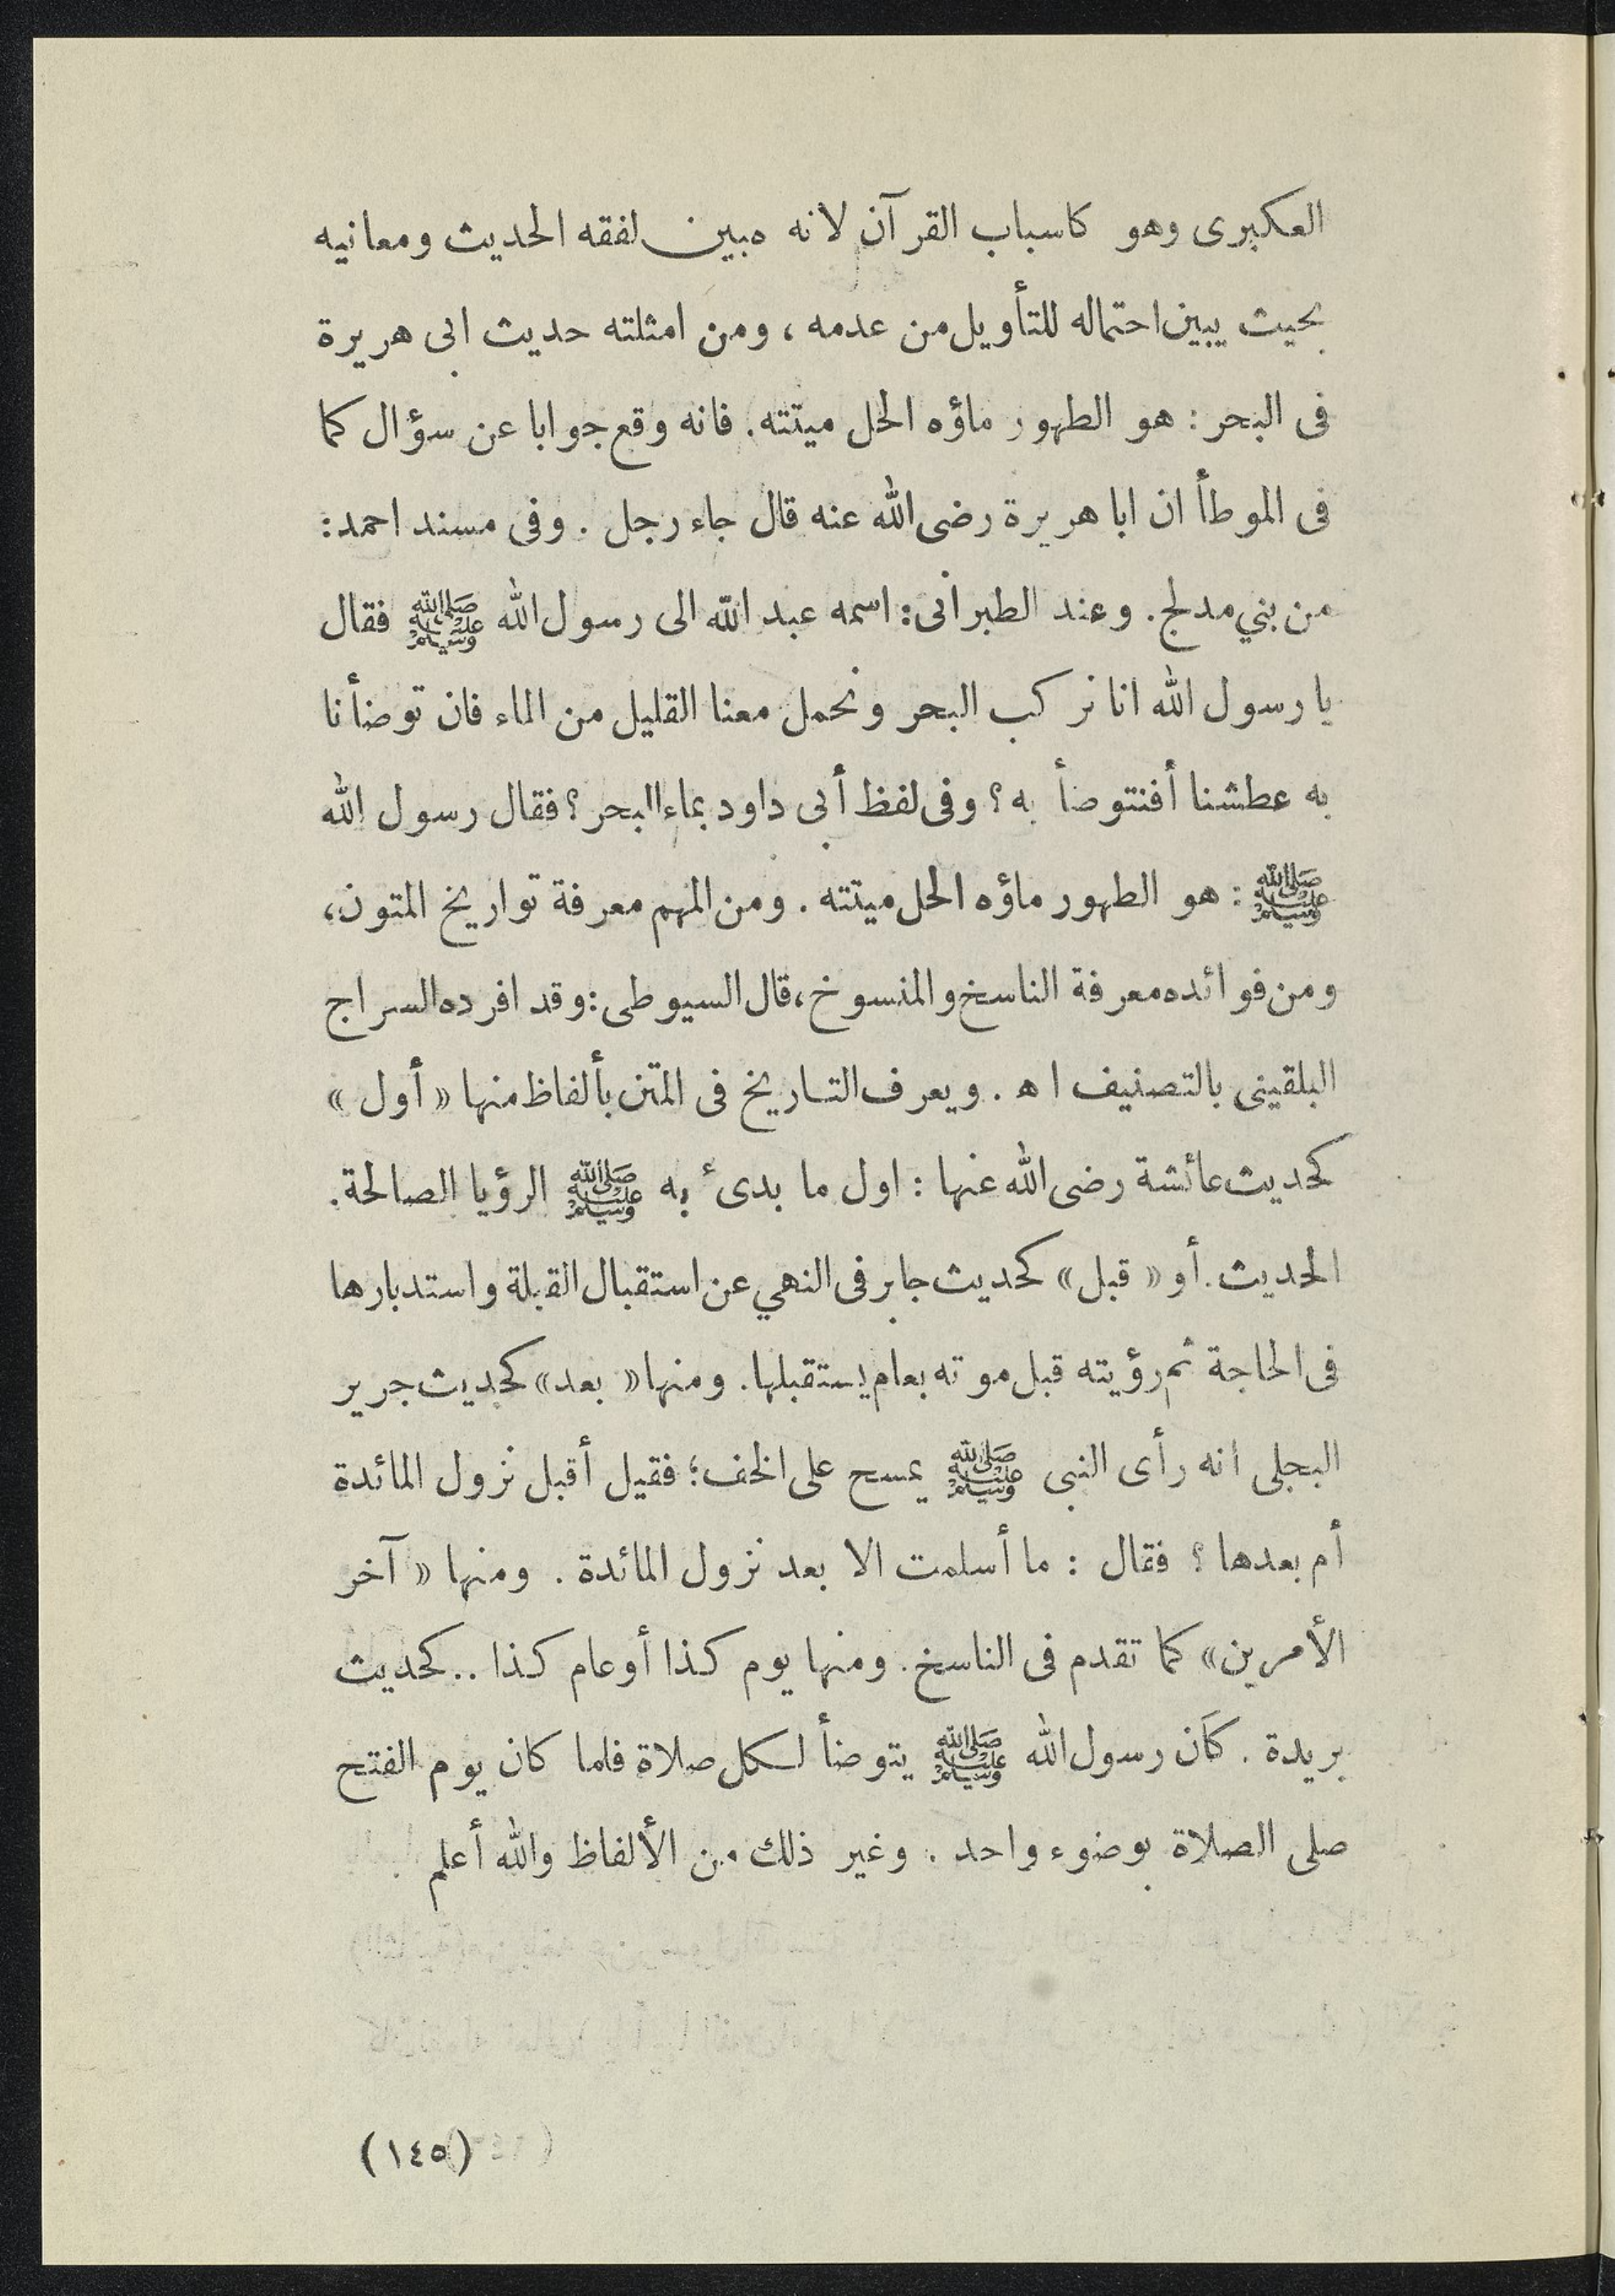 العكبرى وهو كاسباب القرآن لانه مبين لفقه الحديث ومعانيه
بحيث يبين احتماله للتأويل من عدمه ، ومن امثلته حديث ابى هريرة
فى البحر : هو الطهور ماؤه الحل ميتته . فانه وقع جوابا عن سؤال كما
فى الموطأ ان ابا هريرة رضى الله عنه قال جاء رجل . وفى مسند احمد :
من بني مدلج . وعند الطبرانى : اسمه عبد الله الى رسول الله ﷺ فقال
يا رسول الله انا نركب البحر ونحمل معنا القليل من الماء فان توضأنا
به عطشنا أفنتوضأ به ؟ وفى لفظ أبى داود بماء البحر ؟ فقال رسول الله
ﷺ : هو الطهور ماؤه الحل ميتته . ومن المهم معرفة تواريخ المتون ،
ومن فوائده معرفة الناسخ والمنسوخ ، قال السيوطى : وقد افرده السراج
البلقينى بالتصنيف ا ه . ويعرف التاريخ فى المتن بألفاظ منها « أول »
كحديث عائشة رضى الله عنها : اول ما بدئ به ﷺ الرؤيا الصالحة .
الحديث . أو « قبل » كحديث جابر فى النهي عن استقبال القبلة واستدبارها
فى الحاجة ثم رؤيته قبل موته بعام يستقبلها . ومنها « بعد » كحديث جرير
البجلى انه رأى النبى ﷺ يمسح على الخف ؛ فقيل أقبل نزول المائدة
أم بعدها ؟ فقال : ما أسلمت الا بعد نزول المائدة . ومنها « آخر
الأمرين » كما تقدم فى الناسخ . ومنها يوم كذا أو عام كذا .. كحديث
بريدة . كان رسول الله ﷺ يتوضأ لكل صلاة فلما كان يوم الفتح
صلى الصلاة بوضوء واحد . وغير ذلك من الألفاظ والله أعلم .
(١٤٥)